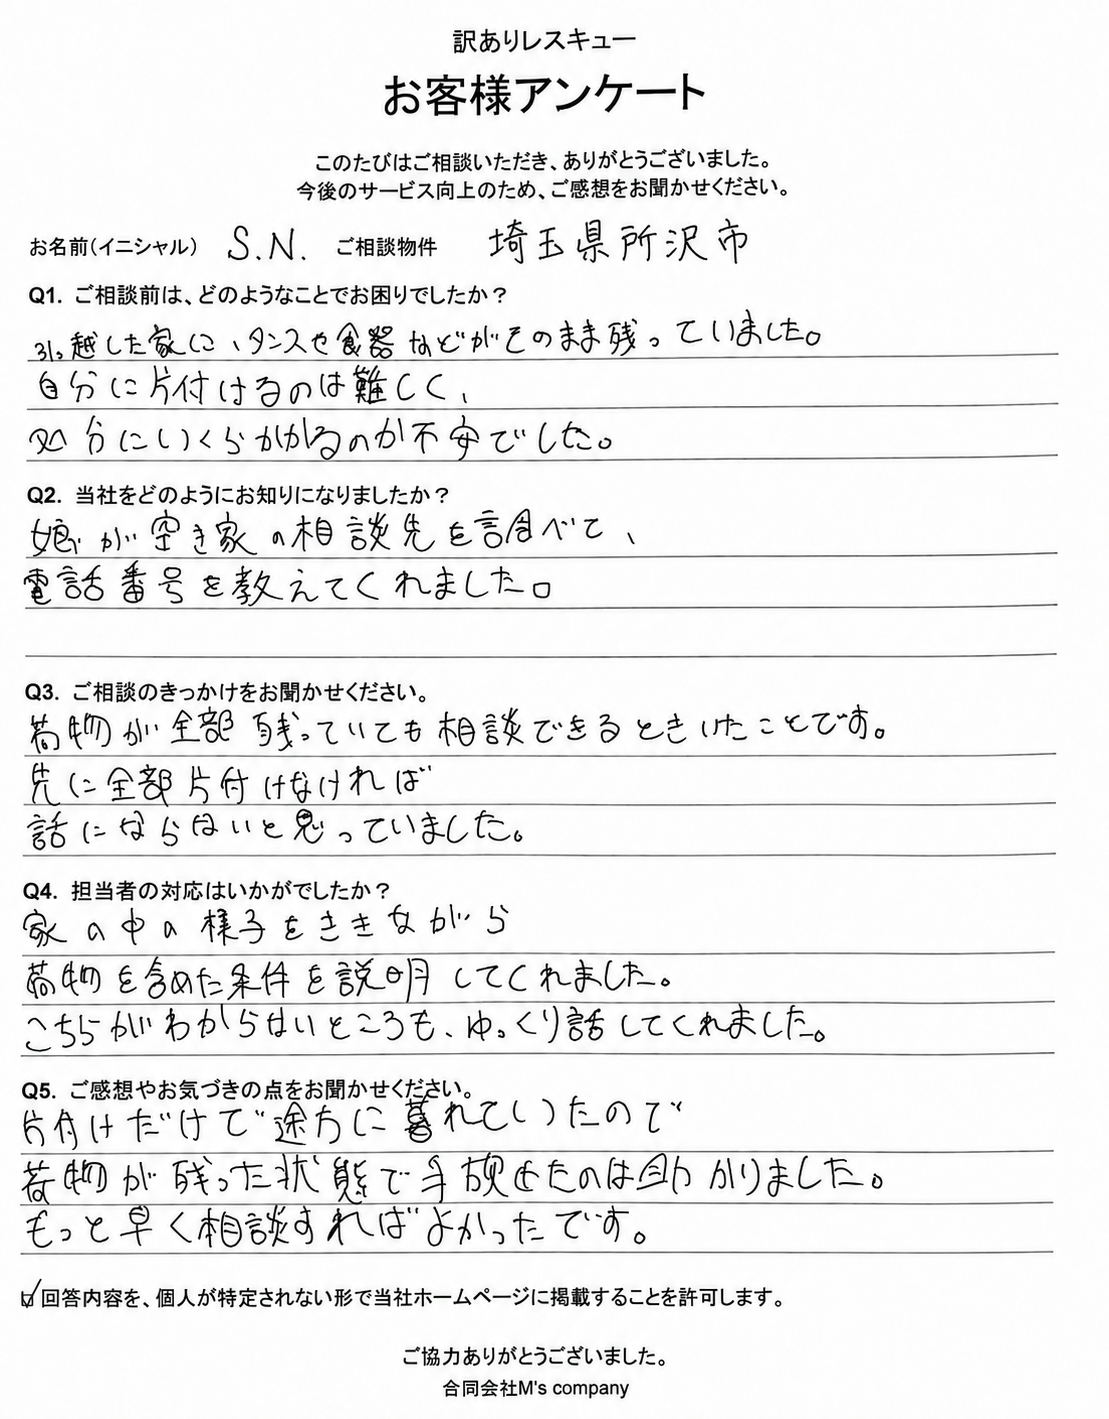 訳ありレスキュー
お客様アンケート
このたびはご相談いただき、ありがとうございました。
今後のサービス向上のため、ご感想をお聞かせください。
お名前(イニシャル) S.N. ご相談物件 埼玉県所沢市
Q1. ご相談前は、どのようなことでお困りでしたか？
引っ越した家に、タンスや食器などがそのまま残っていました。
自分に片付けるのは難しく、
処分にいくらかかるのか不安でした。
Q2. 当社をどのようにお知りになりましたか？
娘が空き家の相談先を調べて、
電話番号を教えてくれました。
Q3. ご相談のきっかけをお聞かせください。
荷物が全部残っていても相談できるときいたことです。
先に全部片付けなければ
話にならないと思っていました。
Q4. 担当者の対応はいかがでしたか？
家の中の様子をききながら
荷物を含めた条件を説明してくれました。
こちらがわからないところも、ゆっくり話してくれました。
Q5. ご感想やお気づきの点をお聞かせください。
片付けだけで途方に暮れていったので
荷物が残った状態で手放せたのは助かりました。
もっと早く相談すればよかったです。
☑回答内容を、個人が特定されない形で当社ホームページに掲載することを許可します。
ご協力ありがとうございました。
合同会社M's company